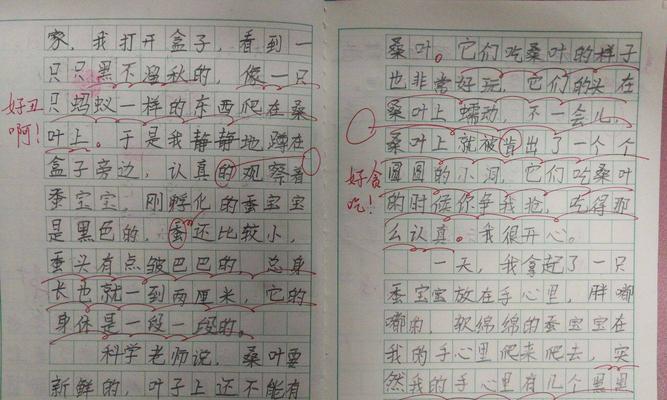 家，我打开盒子，看到一
只只黑不溜秋的，像一只
只蚂蚁一样的东西爬在桑
叶上。于是我静静地蹲在
盒子旁边，认真的观察着
蚕宝宝，刚孵化的蚕宝宝
是黑色的，蚕还比较小，
蚕头有点皱巴巴的，总身
长也就一到两厘米，它的
身体是一段一段的。
科学老师说，桑叶要
新鲜的，叶子上还不能有
好丑
啊！
桑叶。它们吃桑叶的样子
也非常好玩，它们的头在
桑叶上蠕动，不一会儿，
桑叶上就被肯出了一个个
圆圆的小洞，它们吃桑叶
的时候你争我抢，吃得那
么认真。我很开心。
一天，我拿起了一只
蚕宝宝放在手心里，胖嘟
嘟的，软绵绵的蚕宝宝在
我的手心里爬来爬去，突
然我的手心里有几个黑黑
好贪
吃！